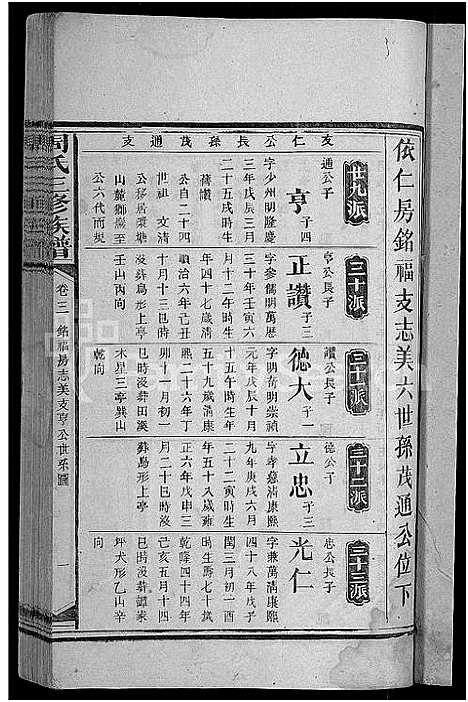 依仁房銘福支志美六世孫茂通公位下
友仁公長孫茂通支
廿九派
通公子
亨 子四
字少州明隆慶
二年戊辰三月
二十五戌時生
公自二十四
世祖文清
公移居
山麓鄉嚴至
公六代而
三十派
亨公長子
正讚 子三
字參儒明萬曆
三十年壬寅六
月十二午時生
年四十七歲清
順治六年己丑
十月十三巳時
歿葬烏形上亭
壬山丙向
三十一派
讚公長子
德大 子一
字明菁明崇禎
元年戊辰十月
十五午時生年
五十九歲清康
熙二十六年丁
卯十一月初一
巳時歿葬田溪
木星三亭巽山
乾向
三十二派
德公子
立忠 子三
字孝慈清康熙
九年庚戌六月
二十二寅時生
年五十八歲雍
正六年戊申三
月二十巳時歿
葬烏形上亭
三十三派
忠公長子
光仁
字兼萬清康熙
四十八年戊子
閏三月初一酉
時生壽七十歲
乾隆四十四年
己亥五月十四
巳時歿葬譚家
坪犬形乙山辛
向
周氏三修族譜
卷三 銘福房志美支亨公世系圖
一